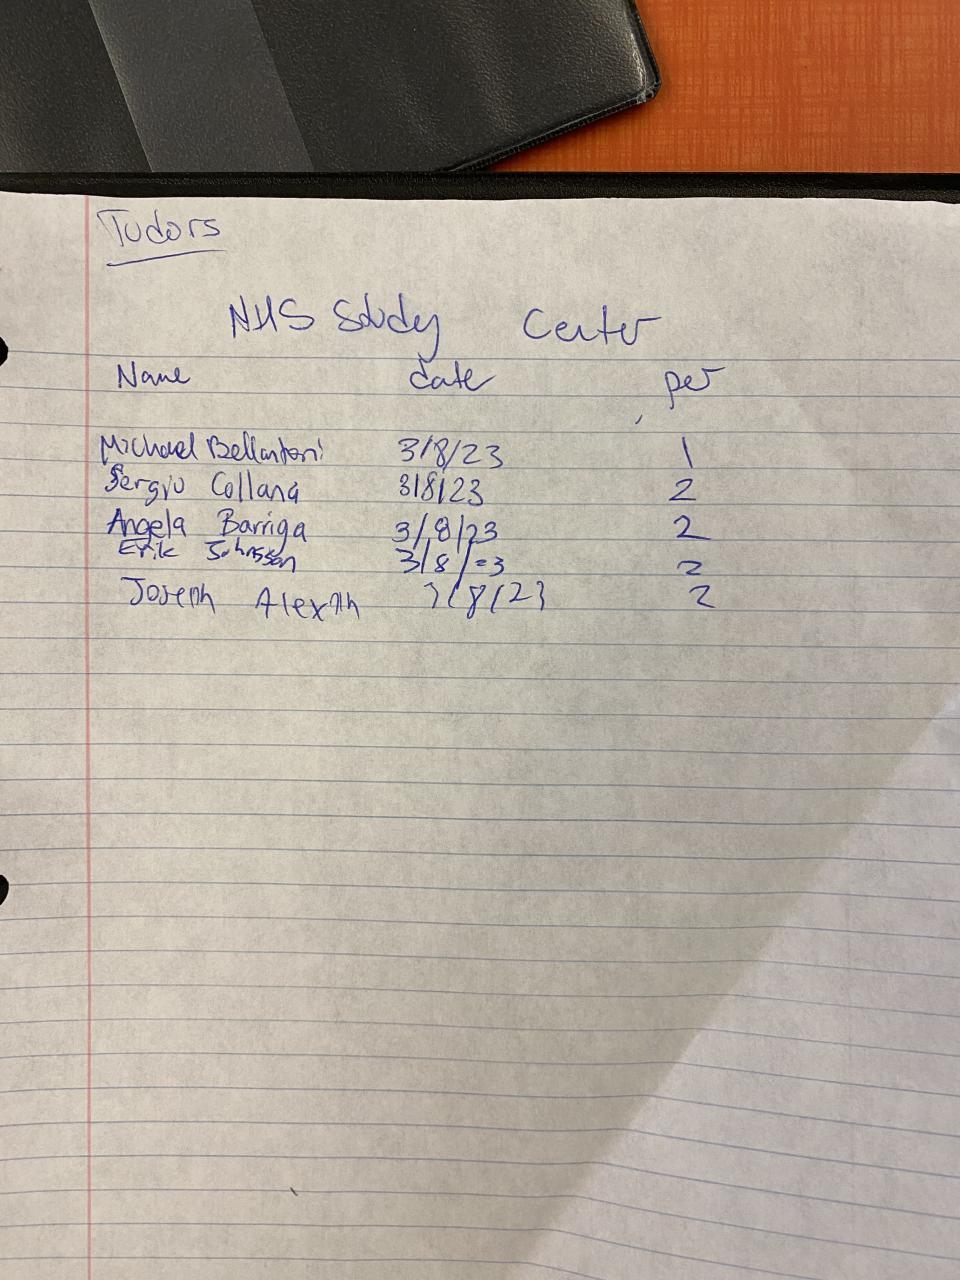 Tudors
NHS Study Center
Name date per
Michael Bellantoni 3/8/23 1
Sergio Collana 3/8/23 2
Angela Barriga 3/8/23 2
Erik Johnsson 3/8/23 2
Joseph 3/8/23 2